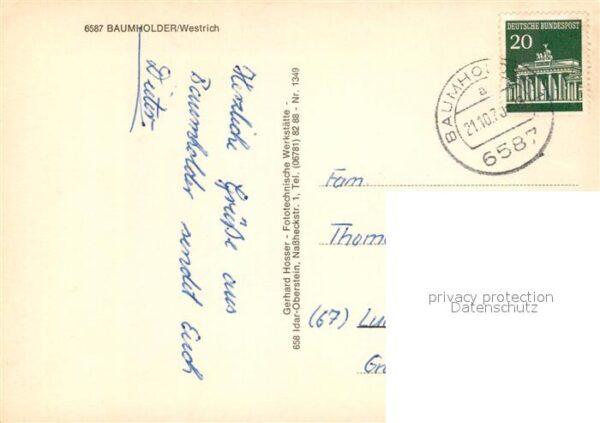 6587 BAUMHOLDER/Westrich
Herzliche Grüße aus
Baumholder sendet Euch
Dieter
Gerhard Hosser - Fototechnische Werkstätte -
658 Idar-Oberstein, Naßheckstr. 1, Tel. (06781) 82 88 - Nr. 1349
DEUTSCHE BUNDESPOST
20
BAUMHO
a
21.10.7
6587
Fam.
Thom
(67) Lu
Gr
privacy protection
Datenschutz